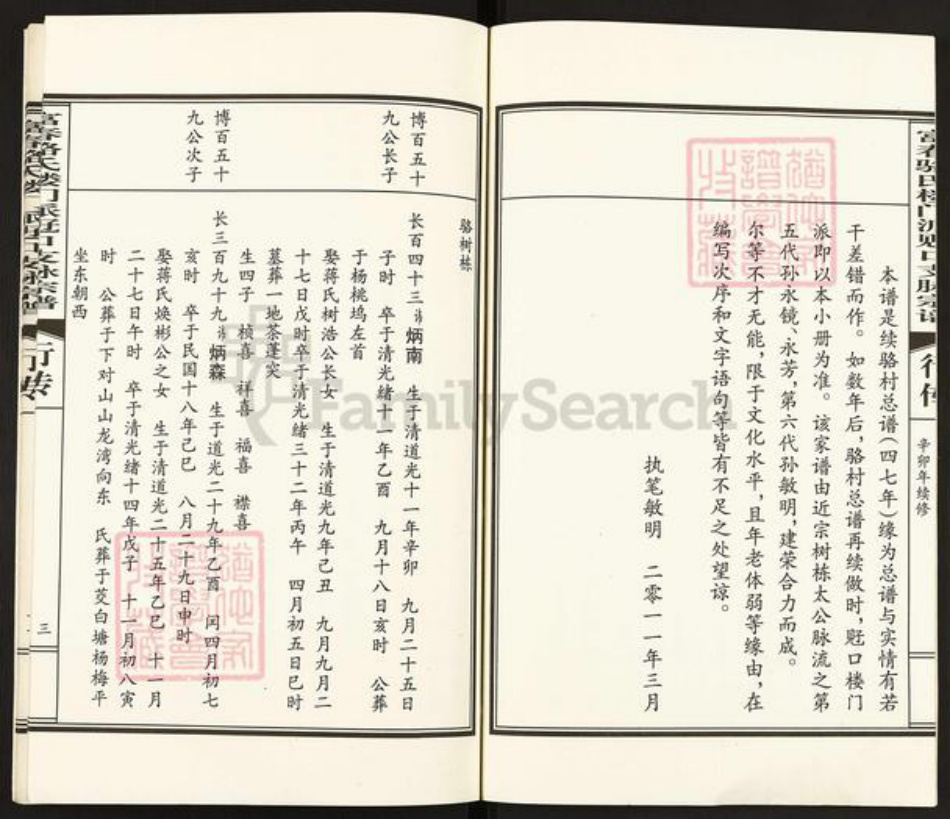 本谱是续骆村总谱(四七年)缘为总谱与实情有若
干差错而作。如数年后,骆村总谱再续做时,贬口楼门
派即以本小册为准。该家谱由近宗树栋太公脉流之第
五代孙永镜、永芳,第六代孙敏明,建荣合力而成。
尔等不才无能,限于文化水平,且年老体弱等缘由,在
编写次序和文字语句等皆有不足之处望谅。
执笔敏明 二零一一年三月
行传
辛卯年续修
骆树栋
博百五十
九公长子
长百四十三讳炳南 生于清道光十一年辛卯 九月二十五日
子时 卒于清光绪十一年乙酉 九月十八日亥时 公葬
于杨桃坞左首
娶蒋氏树浩公长女 生于清道光九年己丑 九月九月二
十七日戌时卒于清光绪三十二年丙午 四月初五日巳时
墓葬一地茶蓬穾
生四子 桢喜 祥喜 福喜 襟喜
博百五十
九公次子
长三百九十九讳炳森 生于道光二十九年乙酉 闰四月初七
亥时 卒于民国十八年己巳 八月二十九日申时
娶蒋氏焕彬公之女 生于清道光二十五年乙巳 十一月
二十七日午时 卒于清光绪十四年戊子 十一月初八寅
时 公葬于下对山山龙湾向东 氏葬于茭白塘杨梅平
坐东朝西
行传
三
FamilySearch